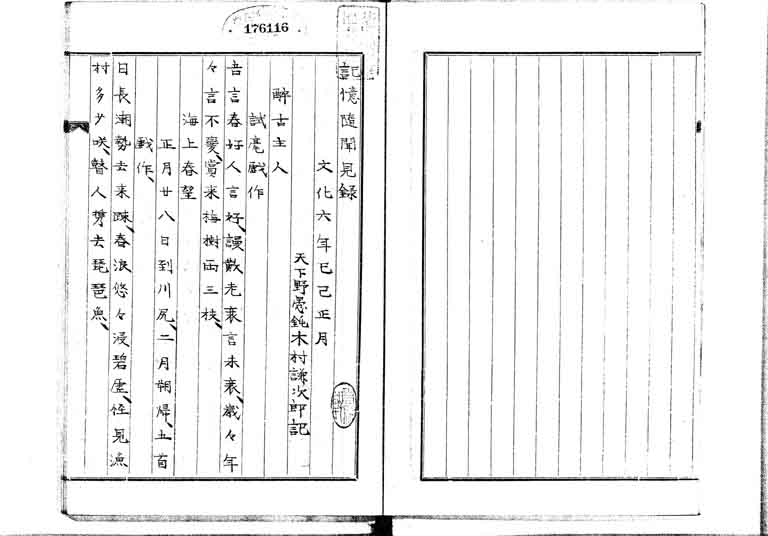 176116
記憶随聞見録
文化六年己巳正月
天下野愚鈍木村謙次郎記
醉古主人
試毫戯作
吾言春好人言好、謾歎老衰言未衰、歳々年
々言不憂、賞来梅樹両三枝、
海上春望
正月廿八日到川尻、二月朔帰、五首
戯作、
日長潮勢去来踈、春浪悠々浸碧虚、怪見漁
村多少咲、瞽人剪去琵琶魚、